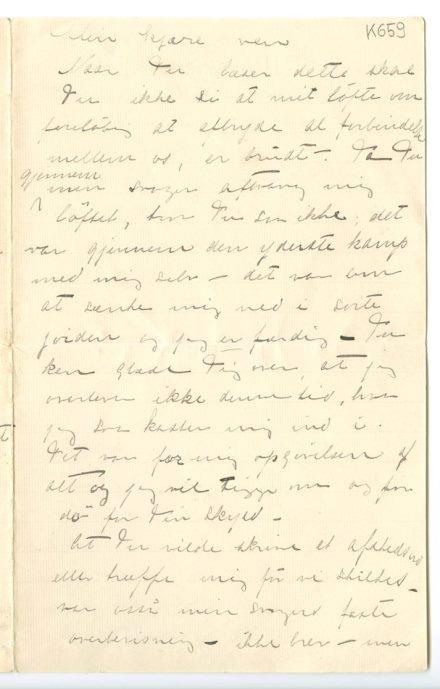 K659
Min kjære ven
Naar Du læser dette skal
Du ikke si at mit løfte om
foreløbig at afbryde al forbindelse
mellem os, er brudt –. Da Du
gjennem
min svoger aftvang mig
løftet, tror Du saa ikke, det
var gjennem den yderste kamp
med mig selv – det var som
at sænke mig ned i sorte
jorden og jeg er færdig – Du
kan glæde Dig over, at jeg
overlever ikke denne tid, hva
jeg saa kaster mig ind i.
Det var for mig opgivelsen af
alt og jeg vil tigge om og faa
dø for Din skyld –
At Du vilde skrive et afskedsord
eller træffe mig før vi skildes –
var også min svogers faste
overbevisning – ikke brev – men